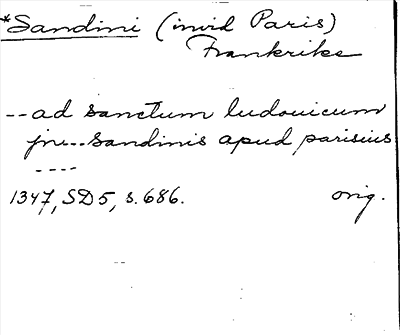 *Sandini (invid Paris)
Frankrike
-- ad sanctum ludouicum
jn... Sandinis apud parisius
----
1347, SD 5, s. 686. orig.